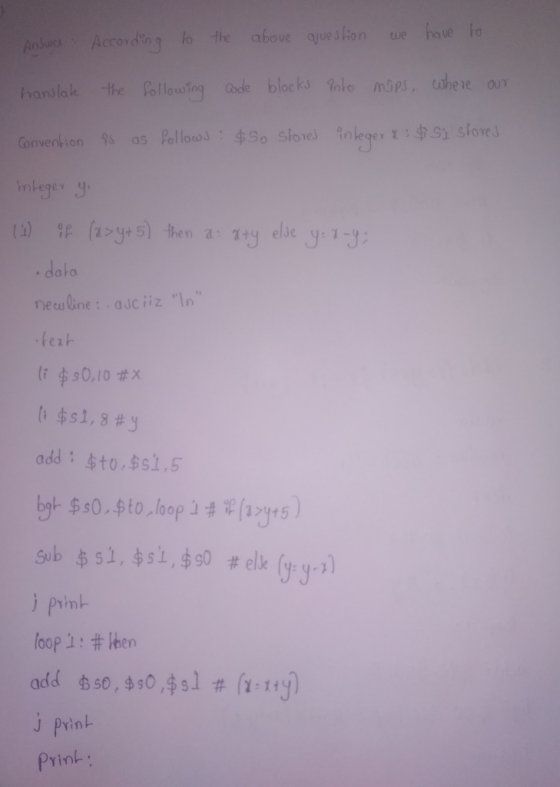 Answer According to the above question we have to
translate the following code blocks into mips, where our
Convention is as follows: $S0 stores integer x : $S1 stores
integer y.
(1) if (x>y+5) then x= x+y else y=x-y;
.data
newline: .asciiz "\n"
.text
li $s0,10 #x
li $s1, 8 #y
addi $t0,$s1,5
bgt $s0,$t0,loop 1 # if(x>y+5)
Sub $s1, $s1, $s0 # else (y=y-x)
j print
loop 1: # then
add $s0,$s0,$s1 # (x=x+y)
j print
Print: